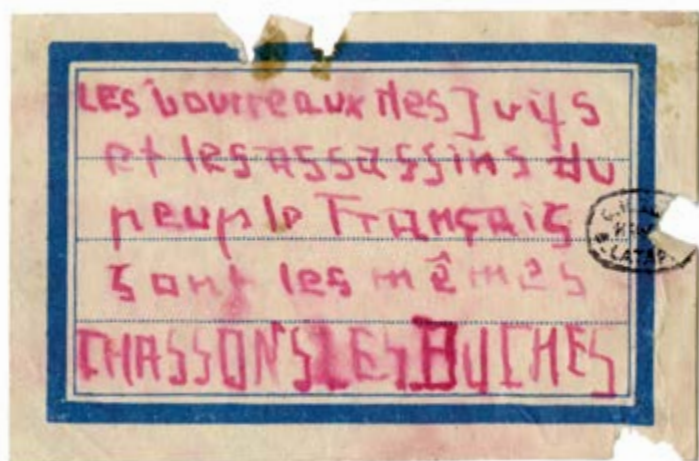 LES bourreaux des Juifs
et les assassins du
peuple Français
sont les mêmes
CHASSONS LES BUCHES